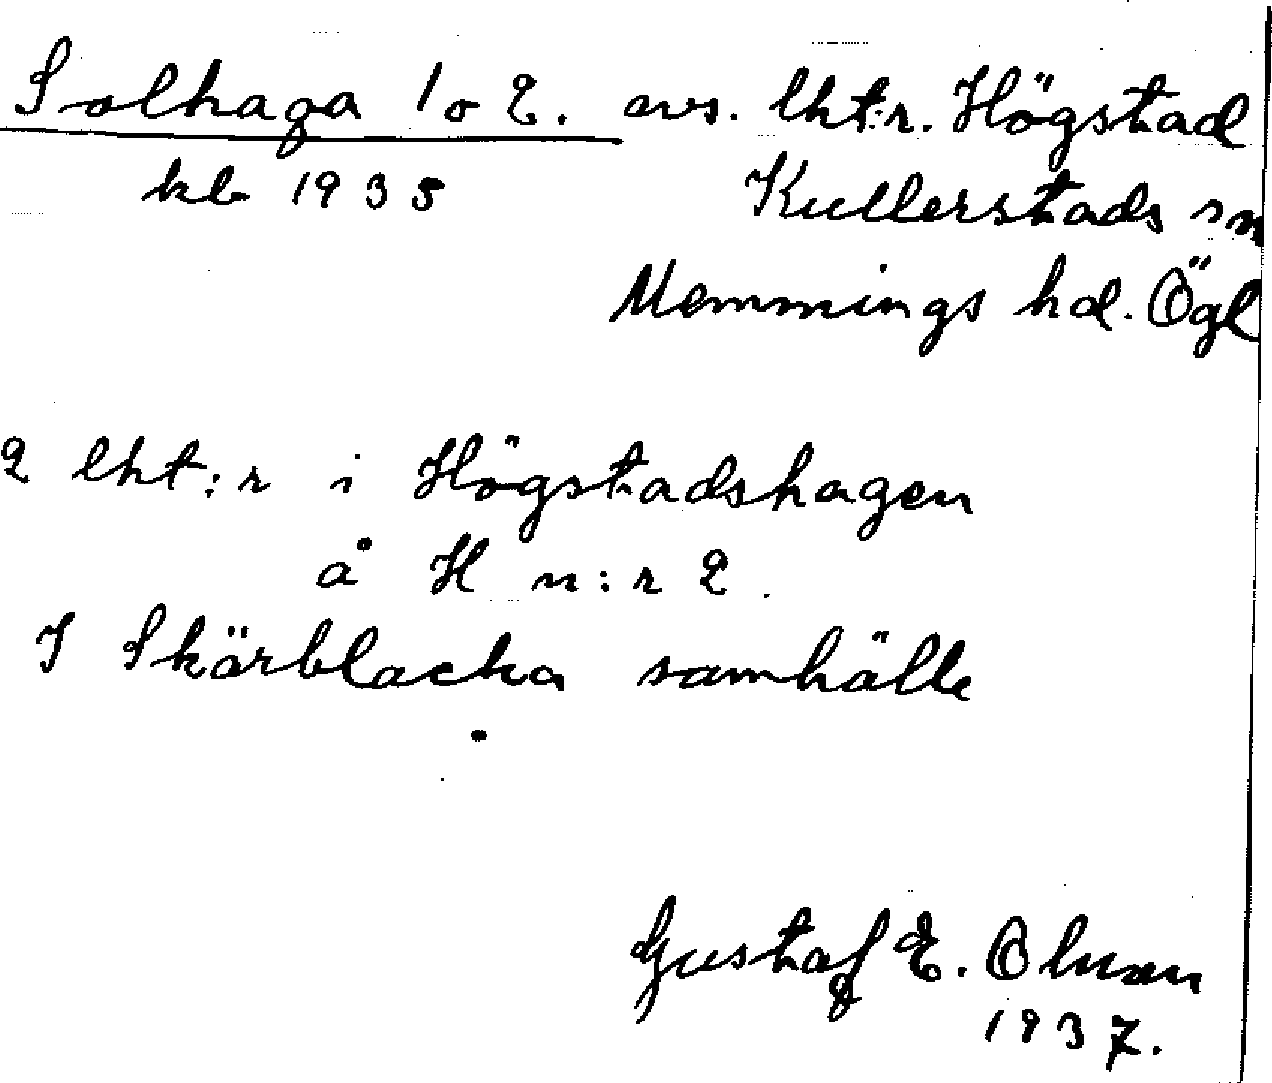 Solhaga 1 o 2. avs. lht:r. Högstad
kb 1935 Kullerstads sn
Memmings hd. Ögl
2 lht:r i Högstadshagen
å H n:r 2.
I Skärblacka samhälle
Gustaf E. Olsson
1937.